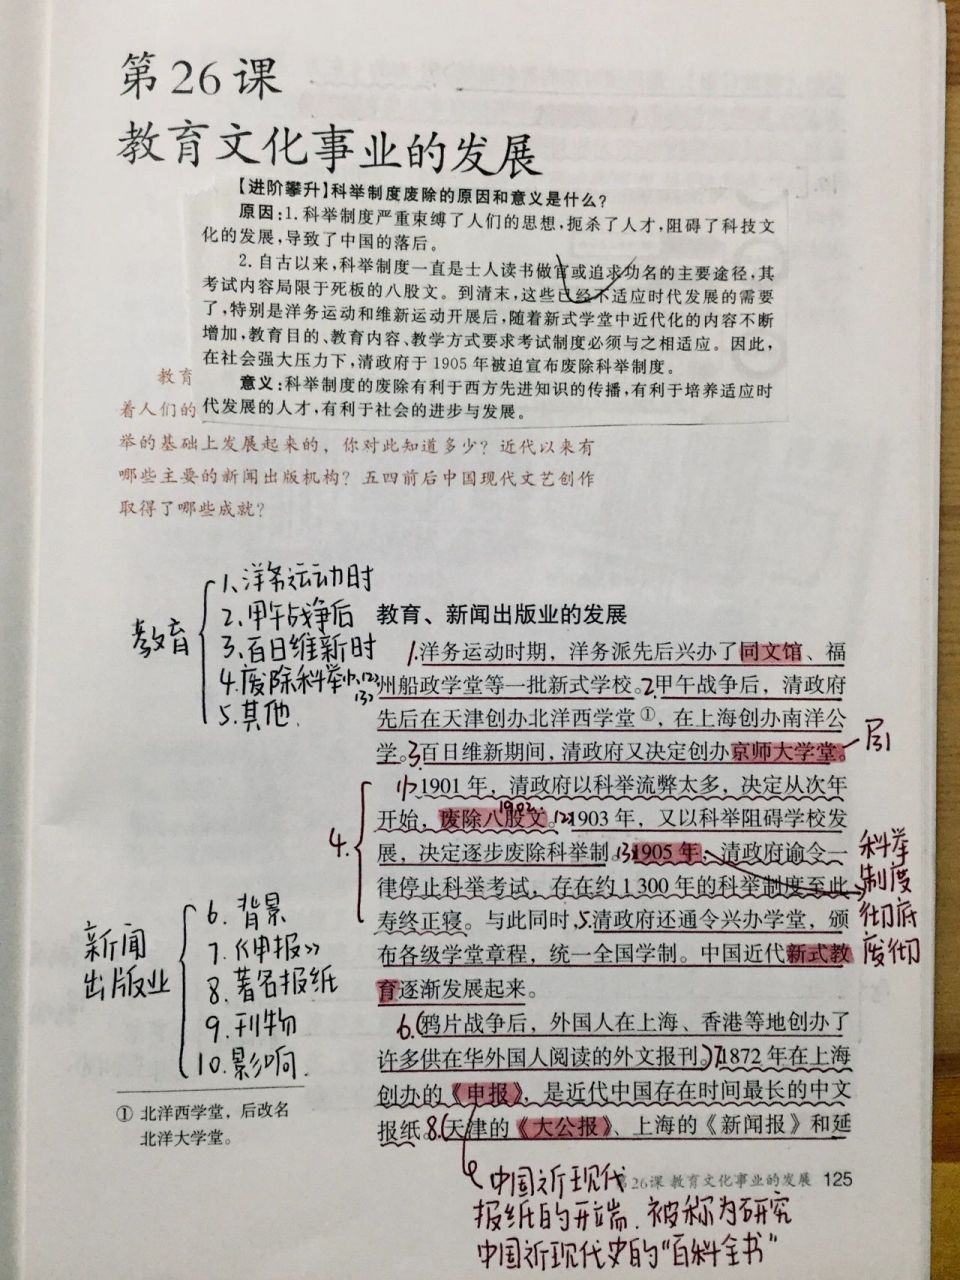 第26课
教育文化事业的发展
【进阶攀升】科举制度废除的原因和意义是什么?
原因:1.科举制度严重束缚了人们的思想,扼杀了人才,阻碍了科技文
化的发展,导致了中国的落后。
2.自古以来,科举制度一直是士人读书做官或追求功名的主要途径,其
考试内容局限于死板的八股文。到清末,这些已经不适应时代发展的需要
了,特别是洋务运动和维新运动开展后,随着新式学堂中近代化的内容不断
增加,教育目的、教育内容、教学方式要求考试制度必须与之相适应。因此,
在社会强大压力下,清政府于1905年被迫宣布废除科举制度。
意义:科举制度的废除有利于西方先进知识的传播,有利于培养适应时
代发展的人才,有利于社会的进步与发展。
教育
着人们的
举的基础上发展起来的,你对此知道多少?近代以来有
哪些主要的新闻出版机构?五四前后中国现代文艺创作
取得了哪些成就?
教育
1.洋务运动时
2.甲午战争后
3.百日维新时
4.废除科举(1)、(2)
(3)
5.其他.
教育、新闻出版业的发展
1.洋务运动时期,洋务派先后兴办了同文馆、福
州船政学堂等一批新式学校。2.甲午战争后,清政府
先后在天津创办北洋西学堂①,在上海创办南洋公
学。3.百日维新期间,清政府又决定创办京师大学堂。
4.
(1)1901年,清政府以科举流弊太多,决定从次年
1902.
开始,废除八股文。(2)1903年,又以科举阻碍学校发
展,决定逐步废除科举制。(3)1905年,清政府谕令一
律停止科举考试,存在约1300年的科举制度至此
寿终正寝。与此同时,5.清政府还通令兴办学堂,颁
布各级学堂章程,统一全国学制。中国近代新式教
育逐渐发展起来。
科举
制度
彻底
废彻
新闻
出版业
6.背景
7.《申报》
8.著名报纸
9.刊物
10.影响.
6.(鸦片战争后,外国人在上海、香港等地创办了
许多供在华外国人阅读的外文报刊。)7.1872年在上海
创办的《申报》,是近代中国存在时间最长的中文
报纸。8.(天津的《大公报》、上海的《新闻报》和延
①北洋西学堂,后改名
北洋大学堂。
第26课 教育文化事业的发展 125
中国近现代
报纸的开端.被称为研究
中国近现代史的“百科全书”